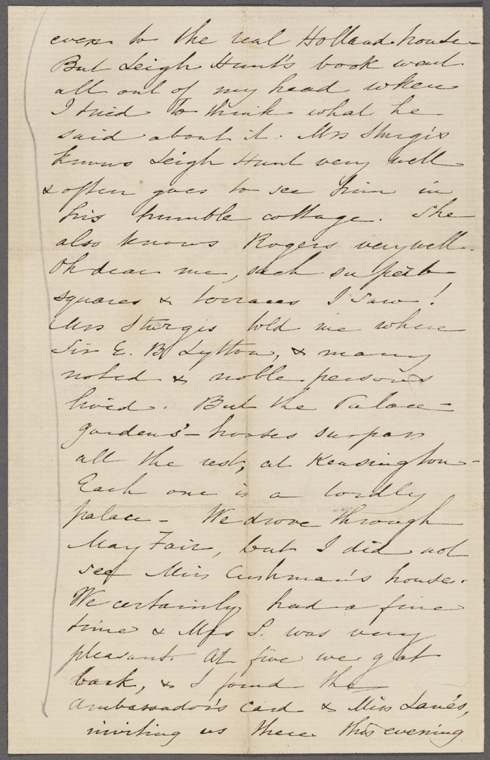 ever to the real Holland house -
But Leigh Hunt's book went
all out of my head when
I tried to think what he
said about it. Mrs Sturgis
knows Leigh Hunt very well
& often goes to see him in
his humble cottage. She
also knows Rogers very well.
Oh dear me, such superb
squares & terraces I saw!
Mrs Sturgis told me where
Sir E. B. Lytton, & many
noted & noble persons
lived. But the Palace -
gardens' - houses surpass
all the rest, at Kensington -
Each one is a lordly
palace - We drove through
May Fair, but I did not
see Miss Cushman's house.
We certainly had a fine
time & Mrs S. was very
pleasant. At five we got
back, & I found the
Ambassador's card & Miss Lane's,
inviting us there this evening